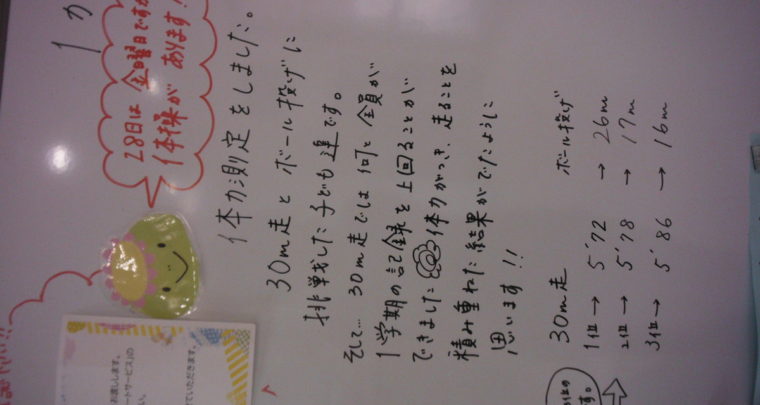 28日は金曜日ですが
体操が あります!
体力測定をしました。
30m走と ボール投げに
挑戦した子ども達です。
そして… 30m走では 何と 全員が
1学期の記録を上回ることが
できました 体力がつき、走ることを
積み重ねた結果がでたように
思います!!
30m走 ボール投げ
1位→ 5"72 → 26m
2位→ 5"78 → 17m
3位→ 5"86 → 16m